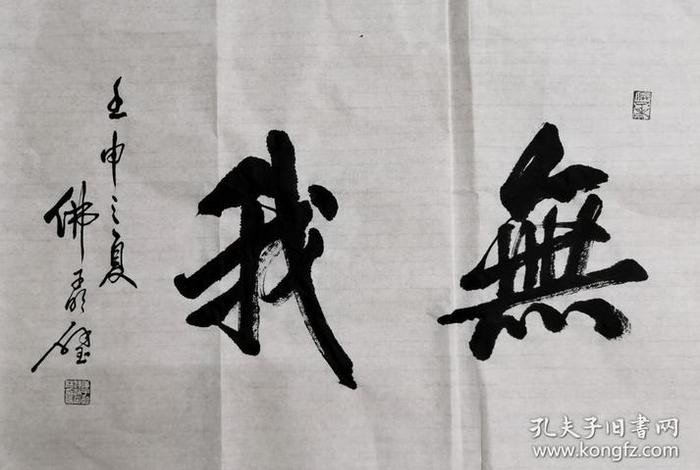 無我
壬申之夏
佛
孔夫子旧书网
www.kongfz.com